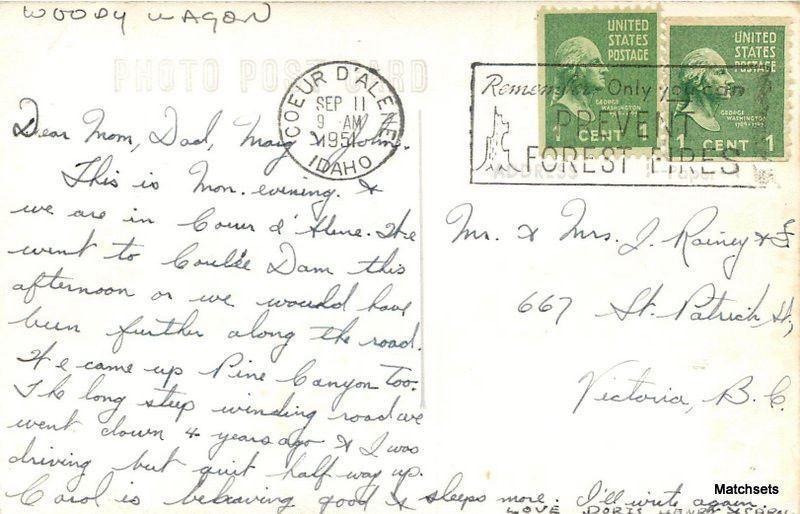 WOODY WAGON
PHOTO POST CARD
UNITED
STATES
POSTAGE
GEORGE
WASHINGTON
1 CENT
UNITED
STATES
POSTAGE
GEORGE
WASHINGTON
1789-1797
1 CENT 1
COEUR D'ALENE
SEP 11
9 AM
1951
IDAHO
Remember- Only you can
PREVENT
FOREST FIRES
ADDRESS
Dear Mom, Dad, & John.
This is Mon. evening. &
we are in Coeur d'Alene. We
went to Coulee Dam this
afternoon or we would have
been further along the road.
We came up Pine Canyon too.
The long steep winding road we
went down 4 years ago & I was
driving but quit half way up.
Carol is behaving good & sleeps more. I'll write again.
LOVE DORIS HENRY &
Mr. & Mrs. J. Rainey & F
667 St. Patrick St,
Victoria, B.C.
Matchsets